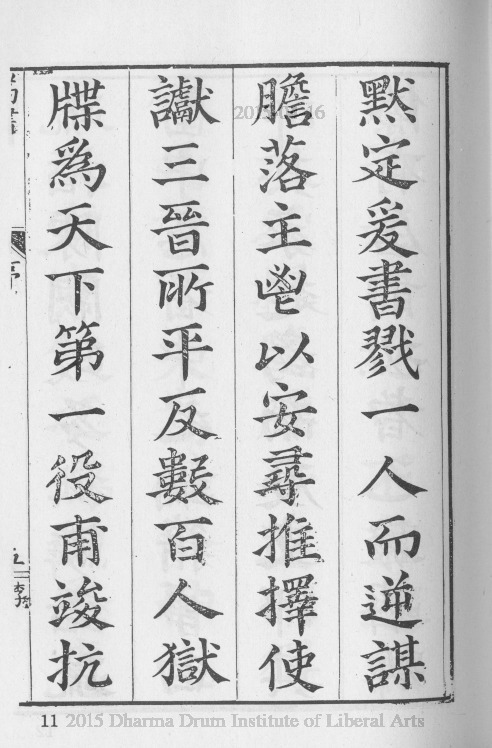 默定爰書戮一人而逆謀
膽落主鬯以安尋推擇使
讞三晉所平反數百人獄
牒為天下第一役甫竣抗
11 2015 Dharma Drum Institute of Liberal Arts